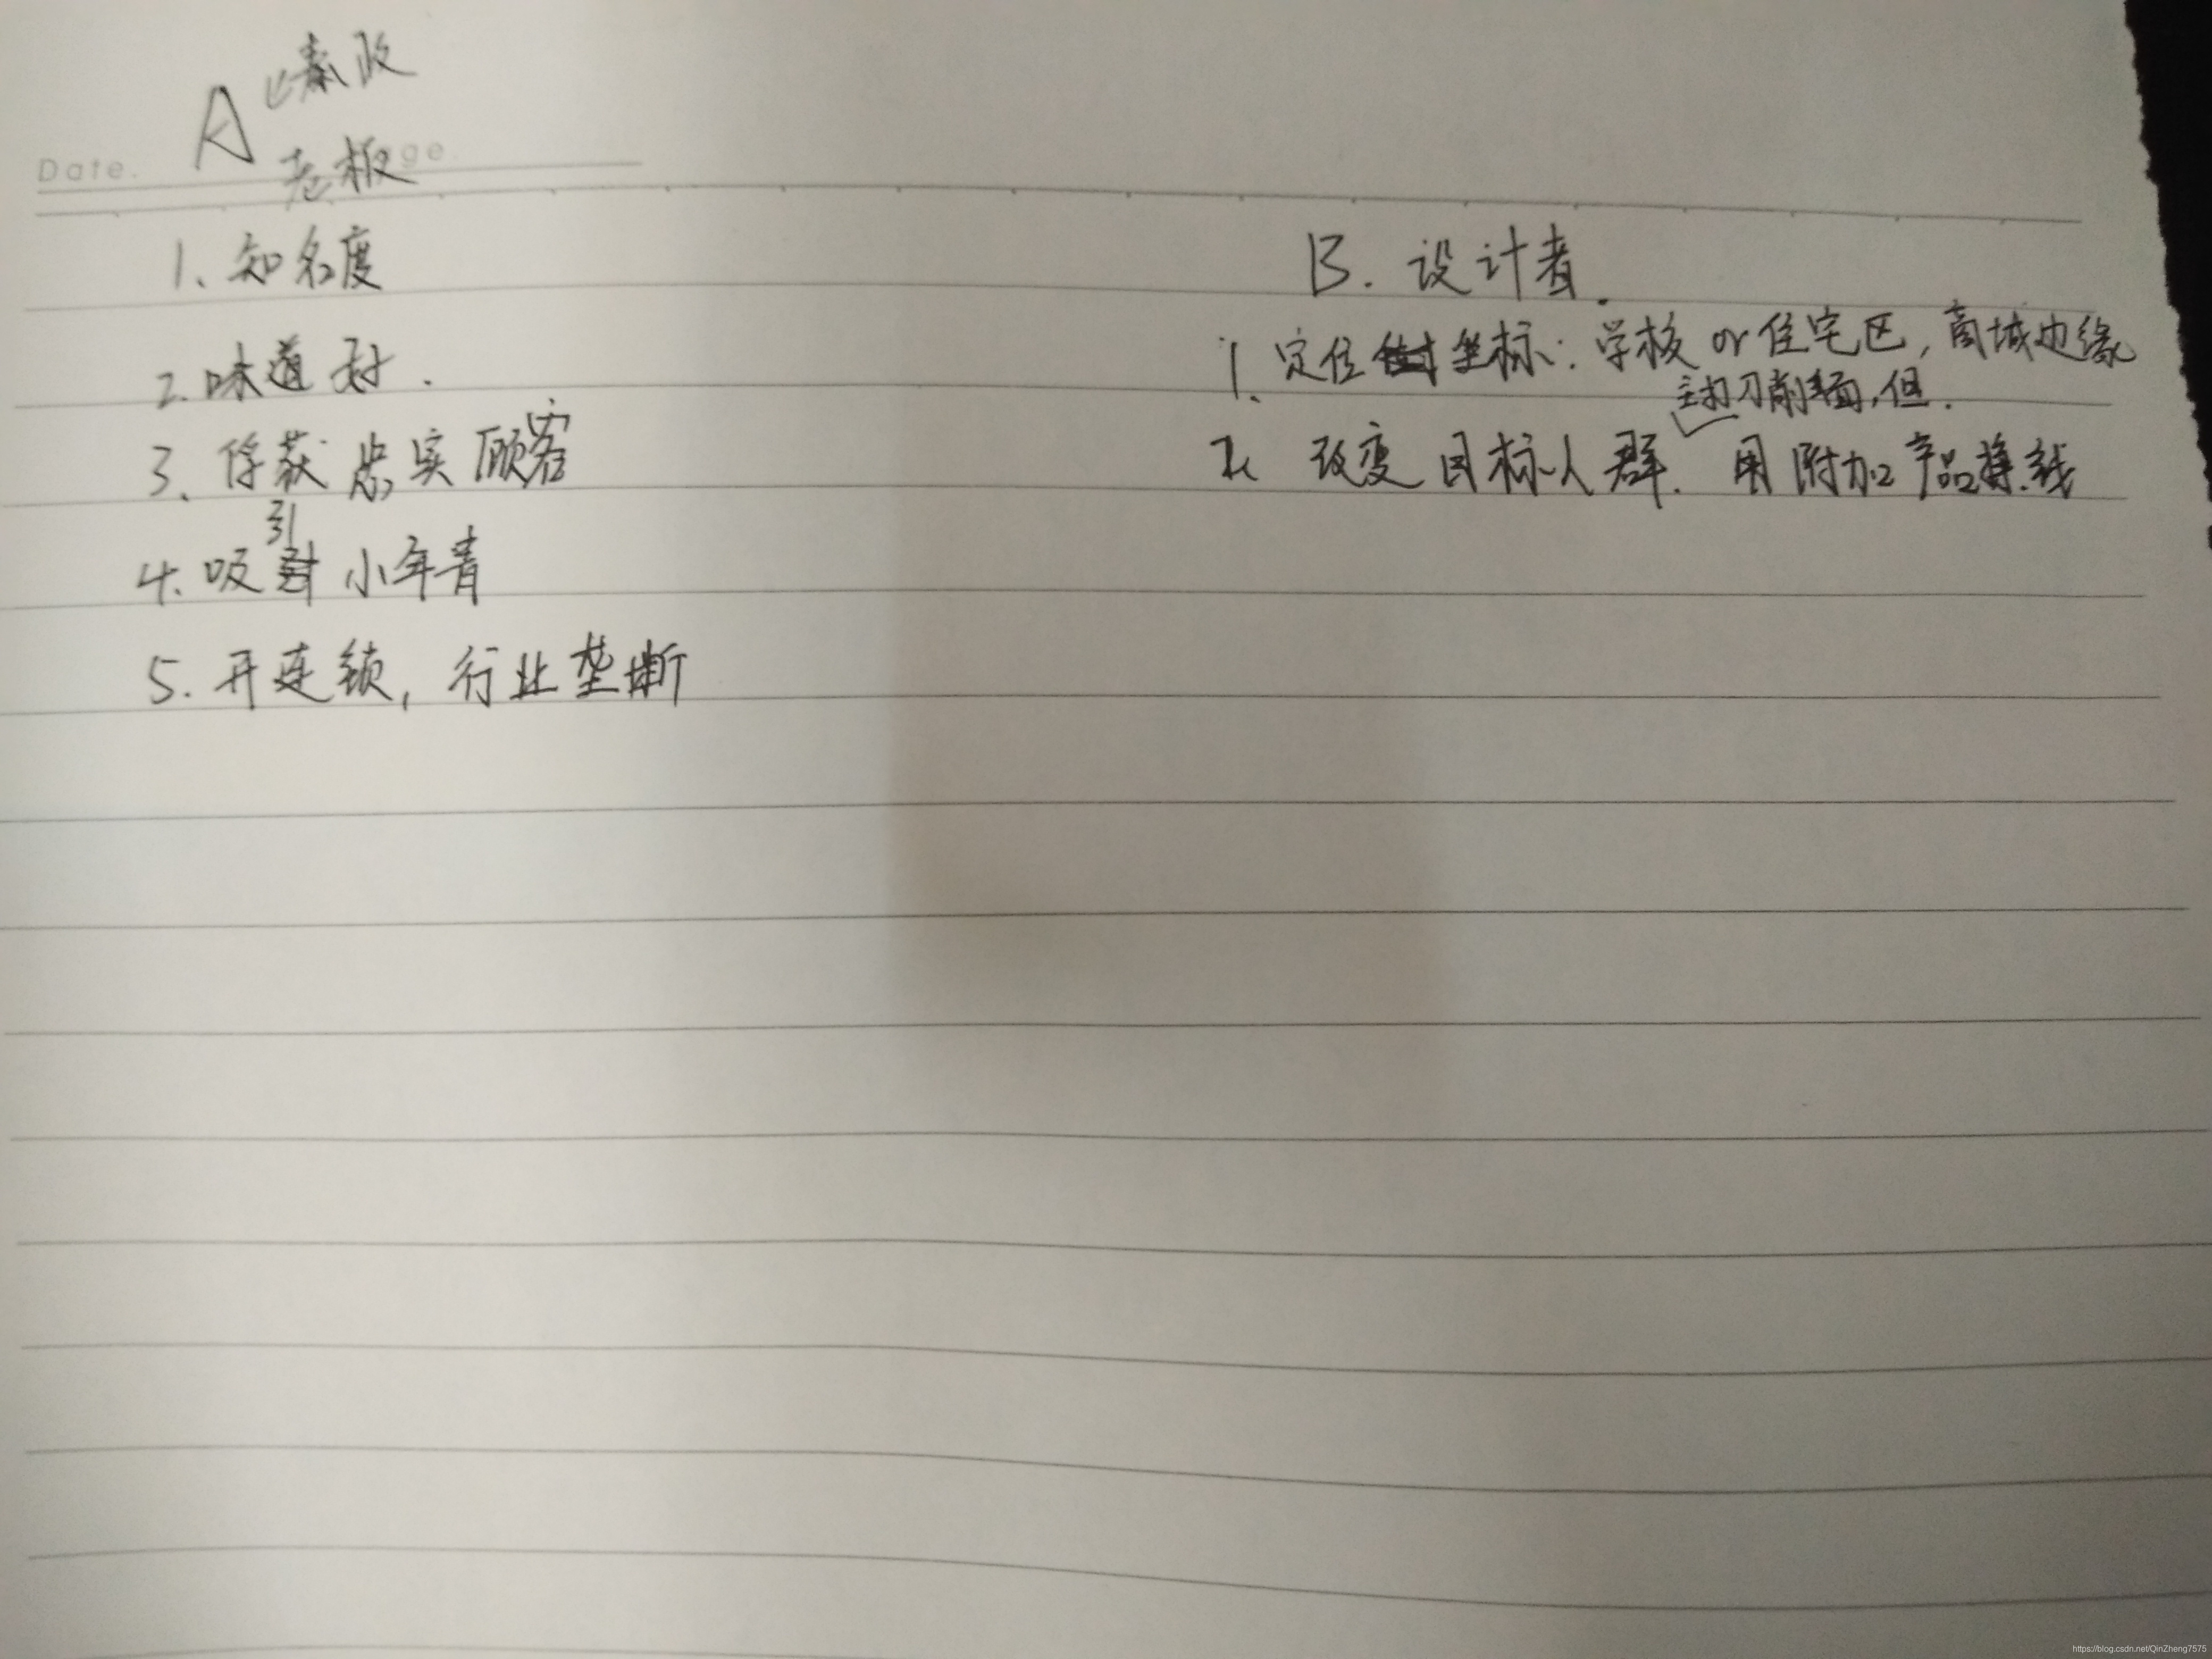 A 秦政
老板
Date.
ge.
1、知名度
2.味道好.
3、俘获忠实顾客
引
4.吸 小年青
5.开连锁,行业垄断
B.设计者.
1、定位 坐标:学校or住宅区,商城边缘
主打刀削面,但.
2、改变目标人群.用附加产品挣钱
https://blog.csdn.net/QinZheng7575